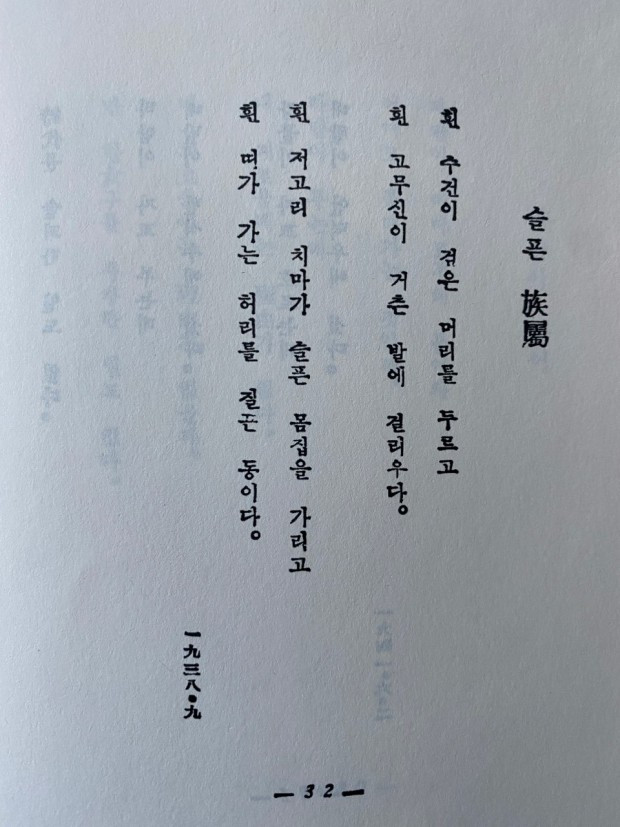 슬픈 族屬
흰 수건이 검은 머리를 두르고
흰 고무신이 거츤 발에 걸리우다。
흰 저고리 치마가 슬픈 몸집을 가리고
흰 띠가 가는 허리를 질끈 동이다。
一九三八•九
— 32 —